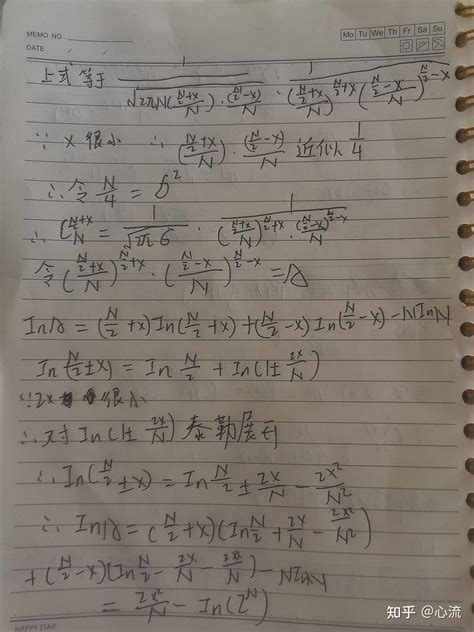 MEMO NO.
DATE
Mo Tu We Th Fr Sa Su
上式等于 1/√(2πN((N/2+x)/N)·((N/2-x)/N)) · 1/(((N/2+x)/N)^(N/2+x) ((N/2-x)/N)^(N/2-x))
∵ x 很小 ∴ ((N/2+x)/N)·((N/2-x)/N) 近似 1/4
∴ 令 N/4 = σ²
∴ C_N^(N/2+x) = 1/(√(2π)σ) · 1/(((N/2+x)/N)^(N/2+x)·((N/2-x)/N)^(N/2-x))
令 ((N/2+x)/N)^(N/2+x)·((N/2-x)/N)^(N/2-x) = A
InA = (N/2+x)In(N/2+x)+(N/2-x)In(N/2-x)-NInN
In(N/2±x) = In N/2 + In(1±2x/N)
∵2x 很小
∴对 In(1±2x/N) 泰勒展开
∴In(N/2±x) = In N/2 ± 2x/N - 2x²/N²
∴ InA = (N/2+x)(In N/2 + 2x/N - 2x²/N²)
+(N/2-x)(In N/2 - 2x/N - 2x²/N²) - NInN
= 2x²/N - In(2^N)
HAPPY STAR
知乎 @心流